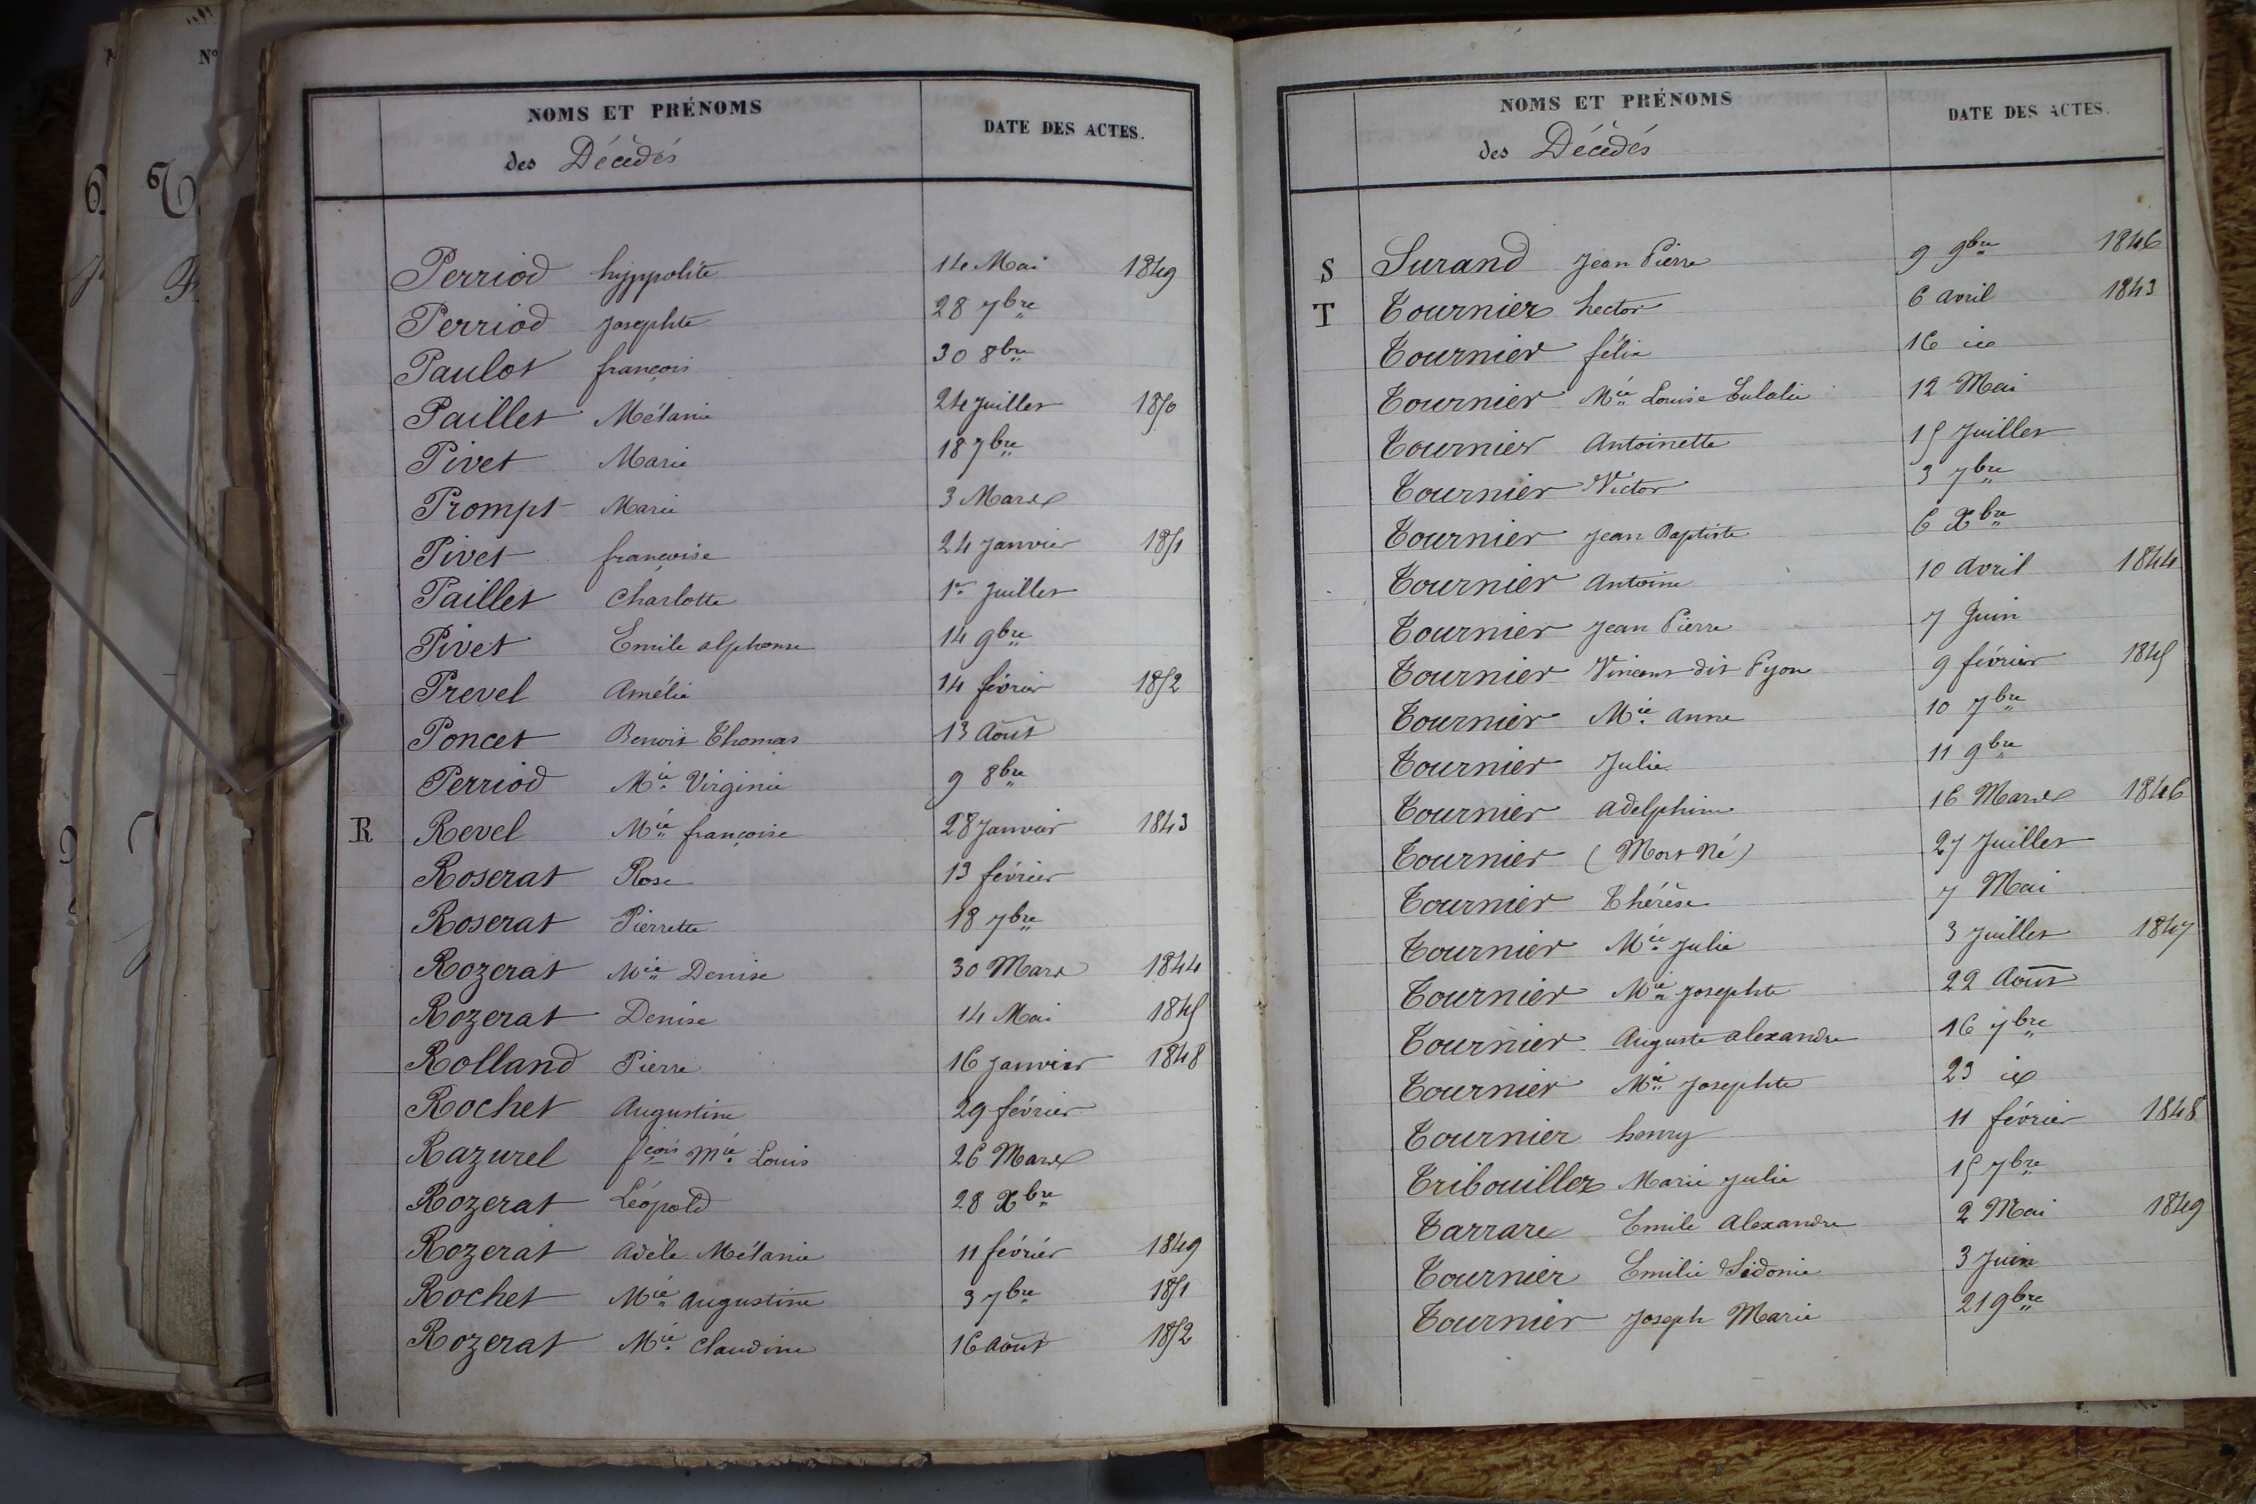 NOMS ET PRÉNOMS
des Décédés
DATE DES ACTES.
Perriod hyppolite 14 Mai 1849
Perriod Josephte 28 7bre
Paulot françois 30 8bre
Paillet Mélanie 24 Juillet 1850
Pivet Marie 18 7bre
Prompt Marie 3 Mars
Pivet françoise 24 Janvier 1851
Paillet Charlotte 1er Juillet
Pivet Emile alphonse 14 9bre
Prevel Amélie 14 février 1852
Poncet Benoit Thomas 13 Août
Perriod Mie Virginie 9 8bre
R Revel Mie françoise 28 Janvier 1843
Roserat Rose 13 février
Roserat Pierrette 18 7bre
Rozerat Mie Denise 30 Mars 1844
Rozerat Denise 14 Mai 1845
Rolland Pierre 16 Janvier 1848
Rochet Augustine 29 février
Razurel fçois Mie Louis 26 Mars
Rozerat Léopold 28 Xbre
Rozerat Adèle Mélanie 11 février 1849
Rochet Mie Augustine 3 7bre 1851
Rozerat Mie Claudine 16 Août 1852
NOMS ET PRÉNOMS
des Décédés
DATE DES ACTES.
S Surand Jean Pierre 9 9bre 1846
T Tournier hector 6 avril 1843
Tournier félix 16 ie
Tournier Mie Louise Eulalie 12 Mai
Tournier Antoinette 15 Juillet
Tournier Victor 3 7bre
Tournier Jean Baptiste 6 Xbre
Tournier Antoine 10 avril 1844
Tournier Jean Pierre 7 Juin
Tournier Vincent dit Pyon 9 février 1845
Tournier Mie Anne 10 7bre
Tournier Julie 11 9bre
Tournier adelphine 16 Mars 1846
Tournier (Mort Né) 27 Juillet
Tournier Thérèse 7 Mai
Tournier Mie Julie 3 Juillet 1847
Tournier Mie Josephte 22 Août
Tournier Auguste alexandre 16 7bre
Tournier Mie Josephte 23 ie
Tournier henry 11 février 1848
Tribouillez Marie Julie 15 7bre
Tarrare Emile Alexandre 2 Mai 1849
Tournier Emilie Sidonie 3 Juin
Tournier Joseph Marie 21 9bre